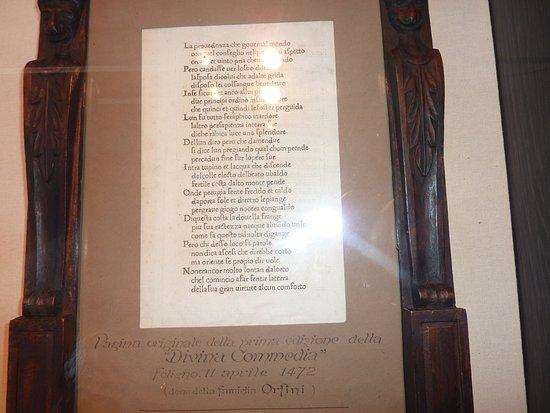 La prouedenza che gouernal mondo
con quel conseglio nelquale ogni aspetto
creato et uinto pria che uada al fondo
Pero candasse uer lo suo diletto
lasposa dicolui che adalte grida
disposo lei col sangue benedetto
Inse sicura et anco allui piu fida
due principi ordino in suo fauore
che quinci et quindi lefosser perguida
Lun fu tutto seraphico inardore
laltro persapienza interra fue
diche rabica luce uno splendore
Dellun diro pero che damendue
si dice lun pregiando qual chom prende
percadun fine fur lopere sue
Intra tupino et lacqua che discende
delcolle electo delbeato ubaldo
fertile costa dalto monte pende
Onde perugia sente freddo et caldo
daporta sole et diretro lepiange
pergraue giogo nocera congualdo
Diquesta costa la douella frange
piu sua rattezza nacque almondo un sole
come fa questo taluolta digange
Pero chi desso loco fa parole
non dica ascesi che direbbe corto
ma oriente se propio dir uole
Nonerancor molto lontan dalorto
chel comincio afar sentir laterra
dellasua gran uirtute alcun comforto
Pagina originale della prima edizione della
"Divina Commedia"
Foligno, 11 aprile 1472
(dono della famiglia Orfini)